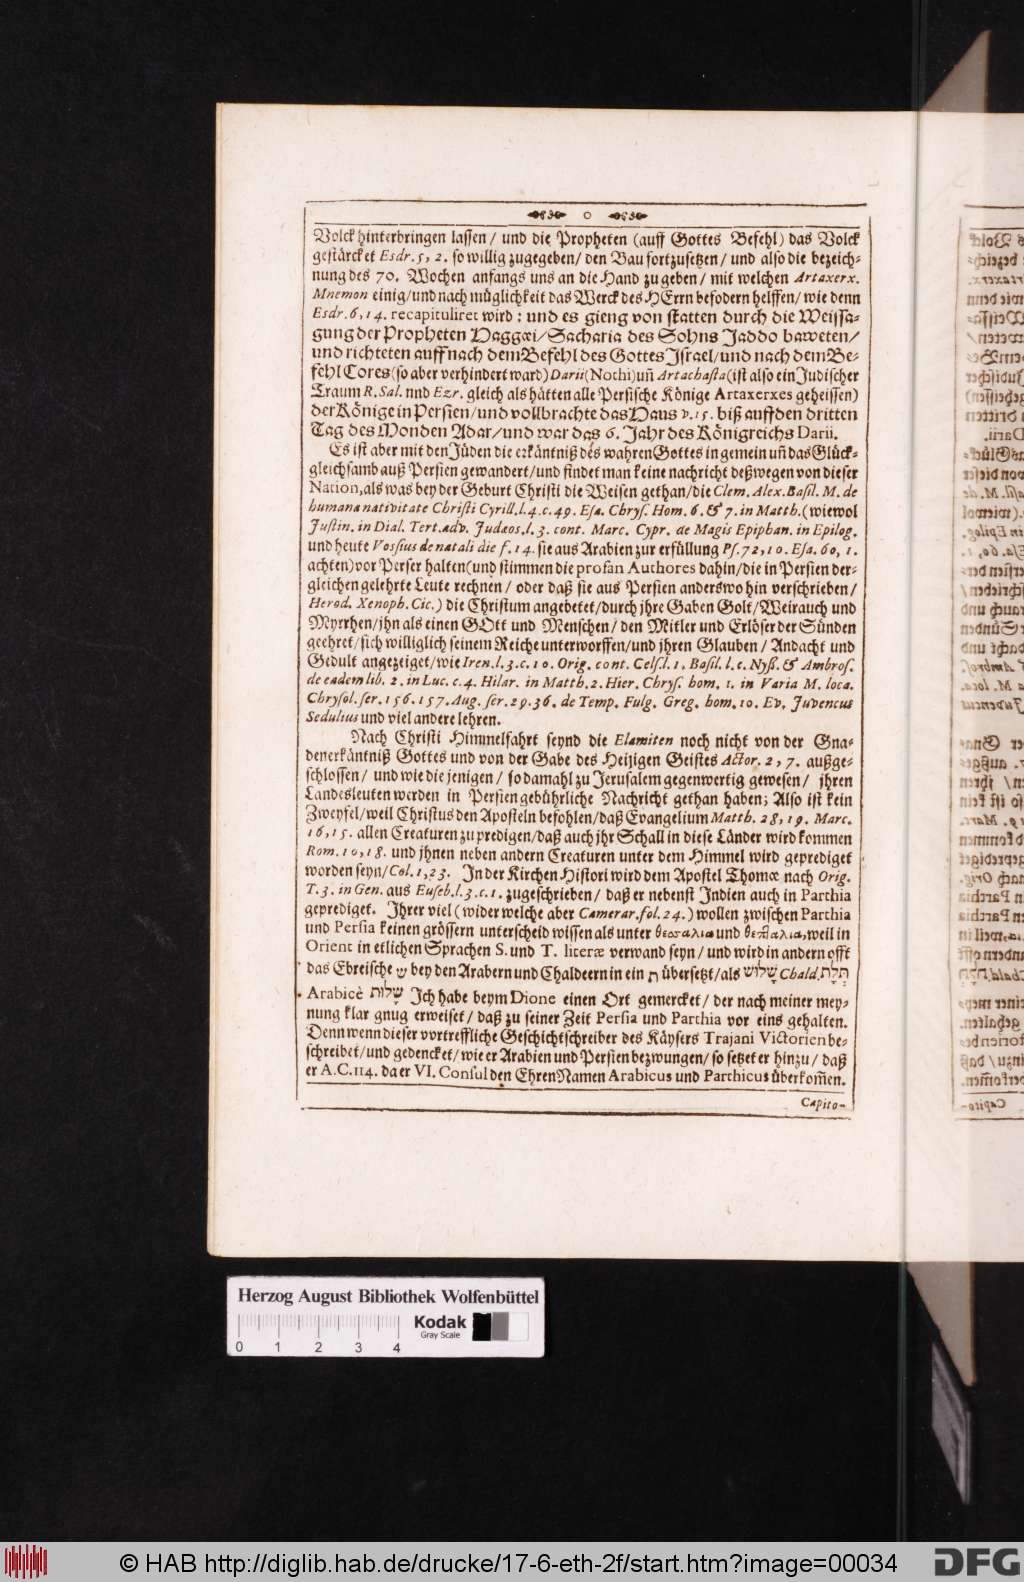 Volck hinterbringen lassen / und die Propheten (auff Gottes Befehl) das Volck
gestärcket Esdr. 5, 2. so willig zugegeben / den Bau fortzusetzen / und also die bezeich-
nung des 70. Wochen anfangs uns an die Hand zu geben / mit welchen Artaxerx.
Mnemon einig / und nach müglichkeit das Werck des HErrn befodern helffen / wie denn
Esdr. 6, 14. recapituliret wird : und es gieng von statten durch die Weissa-
gung der Propheten Haggæi / Sacharia des Sohns Jaddo baweten /
und richteten auff nach dem Befehl des Gottes Jsrael / und nach dem Be-
fehl Cores (so aber verhindert ward) Darii (Nothi) uñ Artachasta (ist also ein Jüdischer
Traum R. Sal. nnd Ezr. gleich als hätten alle Persische Könige Artaxerxes geheissen)
der Könige in Persien / und vollbrachte das Haus v. 15. biß auff den dritten
Tag des Monden Adar / und war das 6. Jahr des Königreichs Darii.
Es ist aber mit den Jüden die erkäntniß des wahren Gottes in gemein uñ das Glück-
gleichsamb auß Persien gewandert / und findet man keine nachricht deßwegen von dieser
Nation, als was bey der Geburt Christi die Weisen gethan / die Clem. Alex. Basil. M. de
humana nativitate Christi Cyrill. l. 4. c. 49. Esa. Chrys. Hom. 6. & 7. in Matth. (wiewol
Justin. in Dial. Tert. adv. Judæos, l. 3. cont. Marc. Cypr. de Magis Epiphan. in Epilog.
und heute Vossius de natali die f. 14. sie aus Arabien zur erfüllung Ps. 72, 10. Esa. 60, 1.
achten) vor Perser halten (und stimmen die profan Authores dahin / die in Persien der-
gleichen gelehrte Leute rechnen / oder daß sie aus Persien anderswo hin verschrieben /
Herod. Xenoph. Cic.) die Christum angebetet / durch jhre Gaben Golt / Weirauch und
Myrrhen / jhn als einen GOtt und Menschen / den Mitler und Erlöser der Sünden
geehret / sich williglich seinem Reiche unterworffen / und jhren Glauben / Andacht und
Gedult angezeiget / wie Iren. l. 3. c. 10. Orig. cont. Cels. l. 1. Basil. l. c. Nyß. & Ambros.
de eadem lib. 2. in Luc. c. 4. Hilar. in Matth. 2. Hier. Chrys. hom. 1. in Varia M. loca.
Chrysol. ser. 156. 157. Aug. ser. 29. 36. de Temp. Fulg. Greg. hom. 10. Ev. Juvencus
Sedulius und viel andere lehren.
Nach Christi Himmelfahrt seynd die Elamiten noch nicht von der Gna-
denerkäntniß Gottes und von der Gabe des Heiligen Geistes Actor. 2, 7. außge-
schlossen / und wie die jenigen / so damahl zu Jerusalem gegenwertig gewesen / jhren
Landesleuten werden in Persien gebührliche Nachricht gethan haben; Also ist kein
Zweyfel / weil Christus den Aposteln befohlen / daß Evangelium Matth. 28, 19. Marc.
16, 15. allen Creaturen zu predigen / daß auch jhr Schall in diese Länder wird kommen
Rom. 10, 18. und jhnen neben andern Creaturen unter dem Himmel wird geprediget
worden seyn / Col. 1, 23. In der Kirchen Histori wird dem Apostel Thomæ nach Orig.
T. 3. in Gen. aus Euseb. l. 3. c. 1. zugeschrieben / daß er nebenst Indien auch in Parthia
geprediget. Ihrer viel (wider welche aber Camerar. fol. 24.) wollen zwischen Parthia
und Persia keinen grössern unterscheid wissen als unter θεσσαλια und θετταλια, weil in
Orient in etlichen Sprachen S. und T. literæ verwand seyn / und wird in andern offt
das Ebreische ש bey den Arabern und Chaldeern in ein ת übersetzt / als שָׁלוֹש Chald. תְּלָת
Arabicè שָׁלוֹת Jch habe beym Dione einen Ort gemercket / der nach meiner mey-
nung klar gnug erweiset / daß zu seiner Zeit Persia und Parthia vor eins gehalten.
Denn wenn dieser vortreffliche Geschichtschreiber des Käysers Trajani Victorien be-
schreibet / und gedencket / wie er Arabien und Persien bezwungen / so setzet er hinzu / daß
er A.C. 114. da er VI. Consul den EhrenNamen Arabicus und Parthicus überkom̃en.
Capito-
Herzog August Bibliothek Wolfenbüttel
Kodak
Gray Scale
0 1 2 3 4
© HAB http://diglib.hab.de/drucke/17-6-eth-2f/start.htm?image=00034
DFG